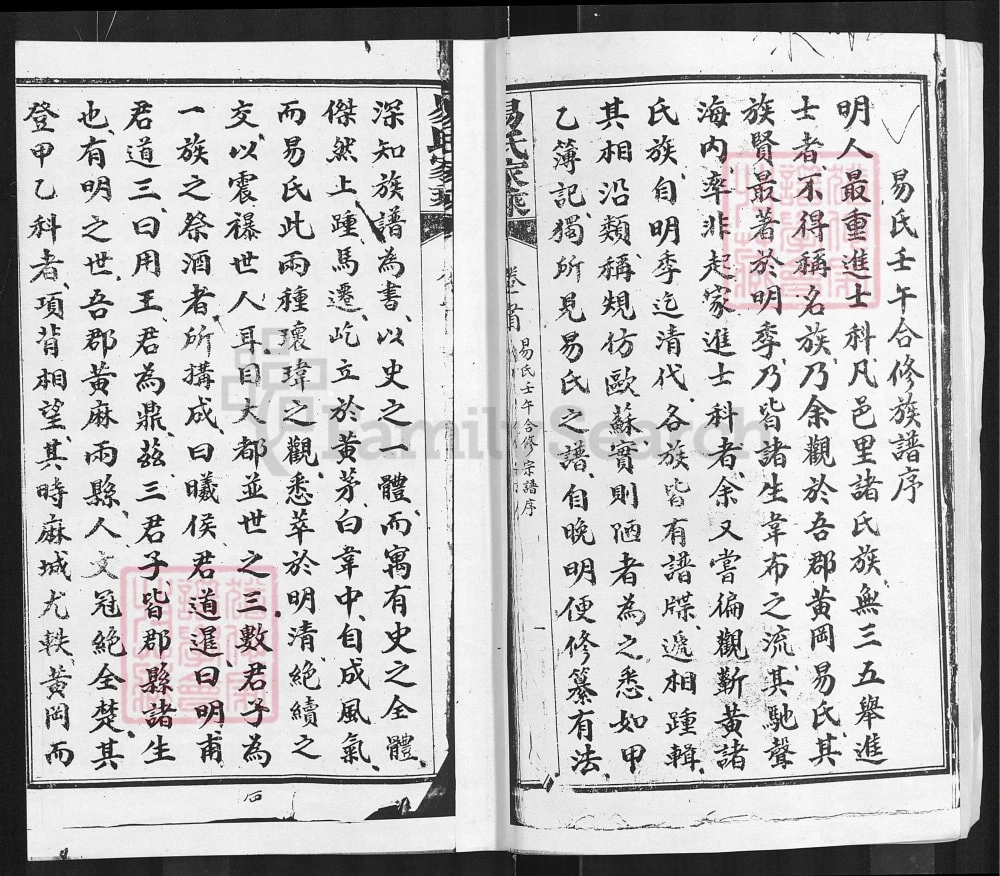 易氏壬午合修族譜序
明人最重進士科、凡邑里諸氏族、無三五舉進
士者、不得稱名族、乃余觀於吾郡黃岡易氏、其
族賢最著於明季、乃皆諸生韋布之流、其馳聲
海內、率非起家進士科者、余又嘗徧觀蘄黃諸
氏族、自明季迄清代、各族皆有譜牒、遞相踵輯、
其相沿類稱規仿歐蘇、實則陋者為之、悉如甲
乙簿記、獨所見易氏之譜、自晚明便修纂有法、
易氏家乘
卷首
易氏壬午合修宗譜序
一
深知族譜為書、以史之一體、而寓有史之全體、
傑然上踵馬遷、屹立於黃茅白葦中、自成風氣、
而易氏此兩種瓌瑋之觀、悉萃於明清絕續之
交、以震襮世人耳目、大都並世之三數君子為
一族之祭酒者、所搆成、曰曦侯君道暹、曰明甫
君道三、曰用王、君為鼎、茲三君子、皆郡縣諸生
也、有明之世、吾郡黃麻兩縣、人文冠絕全楚、其
登甲乙科者、項背相望、其時麻城尤軼黃岡而
FamilySearch